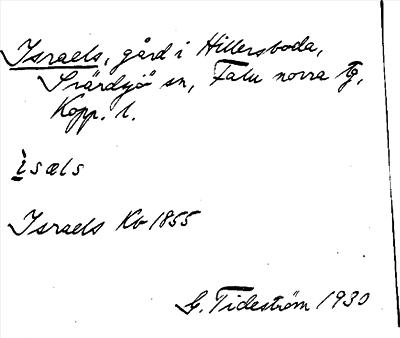 Israels, gård i Hillersboda,
Svärdsjö sn, Falu norra tg,
Kopp. l.
ìsæls
Israels Kb 1855
G. Tideström 1930